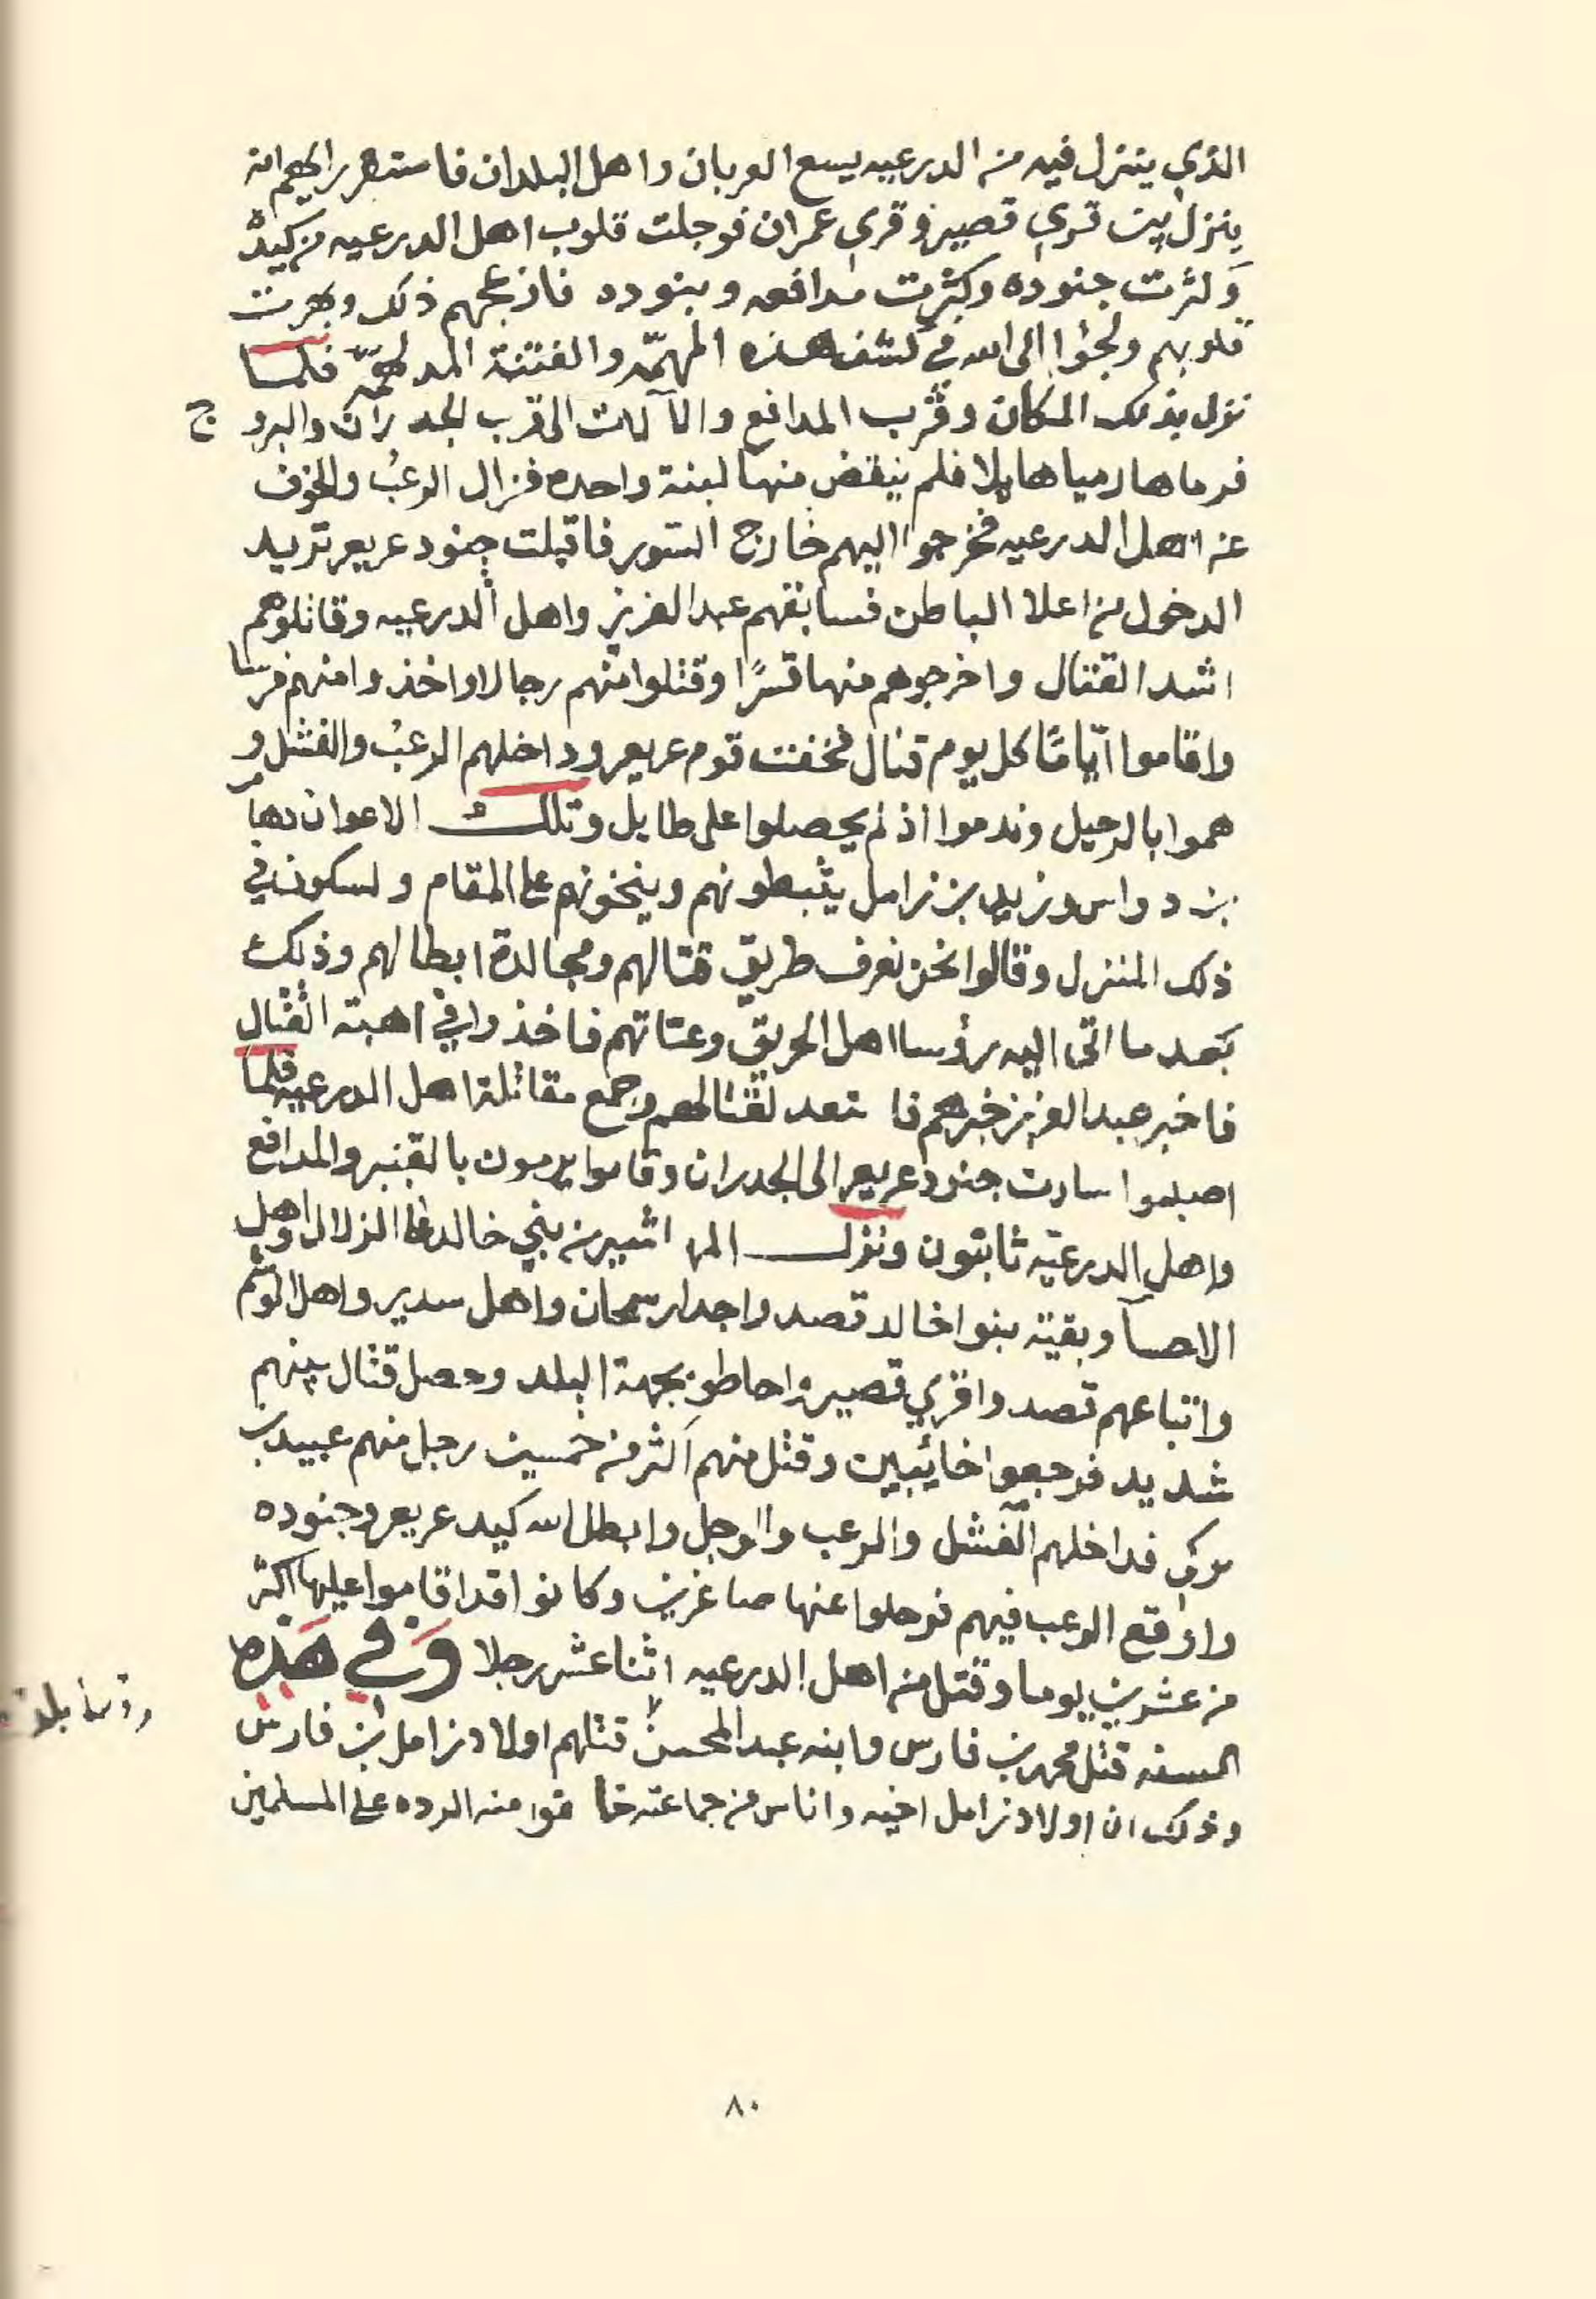 الذي ينزل فيه من الدرعيه يسع العربان واهل البلدان فاستقر رايهم انه
ينزل بين قري قصير وقري عمران فوجلت قلوب اهل الدرعيه من كيده
وكثرت جنوده وكثرت مدافعه وبنوده فازعجهم ذلك وبهرت
قلوبهم ولجؤا الى الله في كشف هذه المهمّه والفتنة المدلهمّه فلما
نزل بذلك المكان وقرب المدافع والآلات الى قرب الجدران والبروج
فرماها رميا هايلا فلم ينقض منها لبنة واحده فزال الرعب والخوف
عن اهل الدرعيه فخرجوا اليهم خارج السور فاقبلت جنود عريعر تريد
الدخول من اعلا الباطن فسابقهم عبد العزيز واهل الدرعيه وقاتلوهم
اشد القتال واخرجوهم منها قسرًا وقتلوا منهم رجالا واخذوا منهم فرسا
واقاموا ايّامًا كل يوم قتال فخفت قوم عريعر وداخلهم الرعب والفشل و
هموا بالرحيل وندموا اذ لم يحصلوا على طايل وتلك الاعوان دهام
بن دواس وزيد بن زامل يثبطونهم وينخونهم على المقام ولسكون في
ذلك المنزل وقالوا نحن نعرف طريق قتالهم ومجالدة ابطالهم وذلك
بعد ما اتى اليه رؤسا اهل الحريق وعتاتهم فاخذوا في اهبته القتال
فاخبر عبد العزيز خبرهم فا ستعد لقتالهم وجمع مقاتلة اهل الدرعيه فلما
اصبحوا سارت جنود عريعر الى الجدران وقاموا يرمون بالقنبر والمدافع
واهل الدرعيّه ثابتون ونزل المهاشير من بني خالد على الزلال واهل
الاحسآ وبقيّة بنوا خالد قصدوا جدار سمحان واهل سدير واهل الوشم
واتباعهم قصدوا قري قصير واحاطو بجهة البلد وحصل قتال بينهم
شديد فرجعوا خائيبين وقتل منهم اكثر من خمسين رجل منهم عبيد بن
تركي فداخلهم الفشل والرعب والوجل وابطل الله كيد عريعر وجنوده
واوقع الرعب فيهم فرحلوا عنها صاغرين وكانوا قد اقاموا عليها اكثر
من عشرين يوما وقتل من اهل الدرعيه اثنا عشر رجلا وفي هذه
السنه قتل محمد بن فارس وابنه عبد المحسن قتلهم اولاد زامل بن فارس
وذلك ان اولاد زامل اخيه واناس من جماعته خافوا منه الرده على المسلمين
٨٠